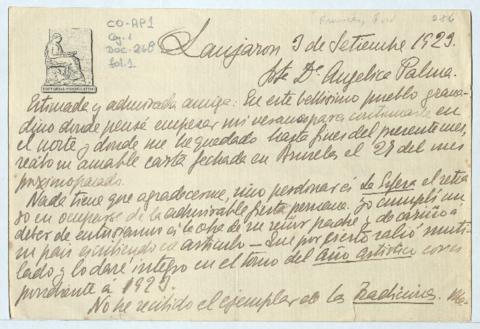 CO-AP1
Caj. 1
DOC-268
fol. 1
286
Lanjaron 3 de Setiembre 1929.
Srta Da Angelica Palma.
Estimada y admirada amiga: En este bellisimo pueblo grana-
dino donde pensé empezar mi veraneo para continuarle en
el norte y donde me he quedado hasta fines del presente mes,
recibo su amable carta fechada en Bruselas el 29 del mes
proximo pasado.
Nada tiene que agradecerme, sino perdonar á La Esfera el retra
so en ocuparse de la admirable fiesta peruana. Yo cumplí un
deber de entusiasmo á la obra de su señor padre y de cariño á
su pais escribiendo el articulo — que por cierto salió muti-
lado y lo daré integro en el tomo del Año Artistico corres
pondiente á 1929.
No he recibido el ejemplar de las Tradiciones.